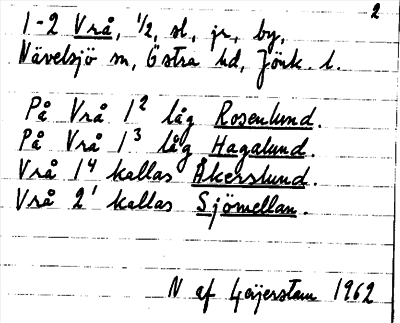 2
1-2 Vrå, 1/2, sl., jr., by,
Nävelsjö sn, Östra hd, Jönk. l.
På Vrå 1² låg Rosenlund.
På Vrå 1³ låg Hagalund.
Vrå 1⁴ kallas Åkerslund.
Vrå 2¹ kallas Sjömellan.
N af Geijerstam 1962